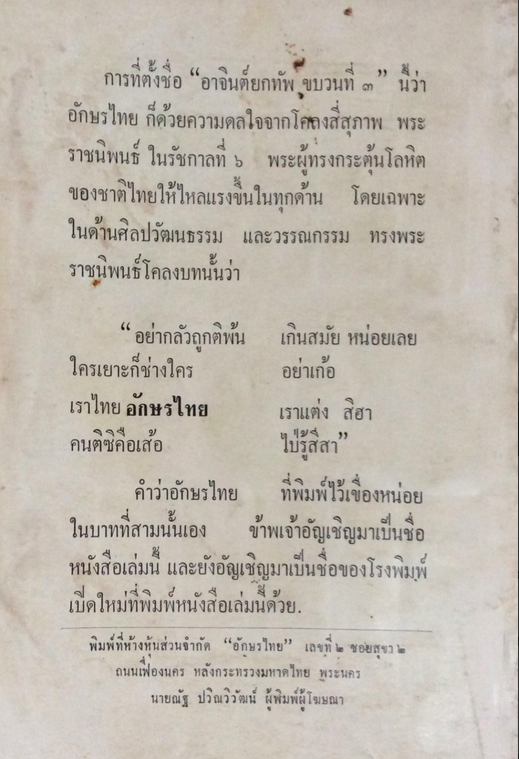 การที่ตั้งชื่อ “อาจินต์ยกทัพ ขบวนที่ ๓” นี้ว่า
อักษรไทย ก็ด้วยความดลใจจากโคลงสี่สุภาพ พระ
ราชนิพนธ์ ในรัชกาลที่ ๖ พระผู้ทรงกระตุ้นโลหิต
ของชาติไทยให้ไหลแรงขึ้นในทุกด้าน โดยเฉพาะ
ในด้านศิลปวัฒนธรรม และวรรณกรรม ทรงพระ
ราชนิพนธ์โคลงบทนั้นว่า
“อย่ากลัวถูกติพ้น เกินสมัย หน่อยเลย
ใครเยาะก็ช่างใคร อย่าเก้อ
เราไทย อักษรไทย เราแต่ง สิฮา
คนติซิคือเส้อ ไป่รู้สีสา”
คำว่าอักษรไทย ที่พิมพ์ไว้เขื่องหน่อย
ในบาทที่สามนั้นเอง ข้าพเจ้าอัญเชิญมาเป็นชื่อ
หนังสือเล่มนี้ และยังอัญเชิญมาเป็นชื่อของโรงพิมพ์
เปิดใหม่ที่พิมพ์หนังสือเล่มนี้ด้วย.
พิมพ์ที่ห้างหุ้นส่วนจำกัด “อักษรไทย” เลขที่ ๒ ซอยสุขา ๒
ถนนเฟื่องนคร หลังกระทรวงมหาดไทย พระนคร
นายณัฐ ปวิณวิวัฒน์ ผู้พิมพ์ผู้โฆษณา